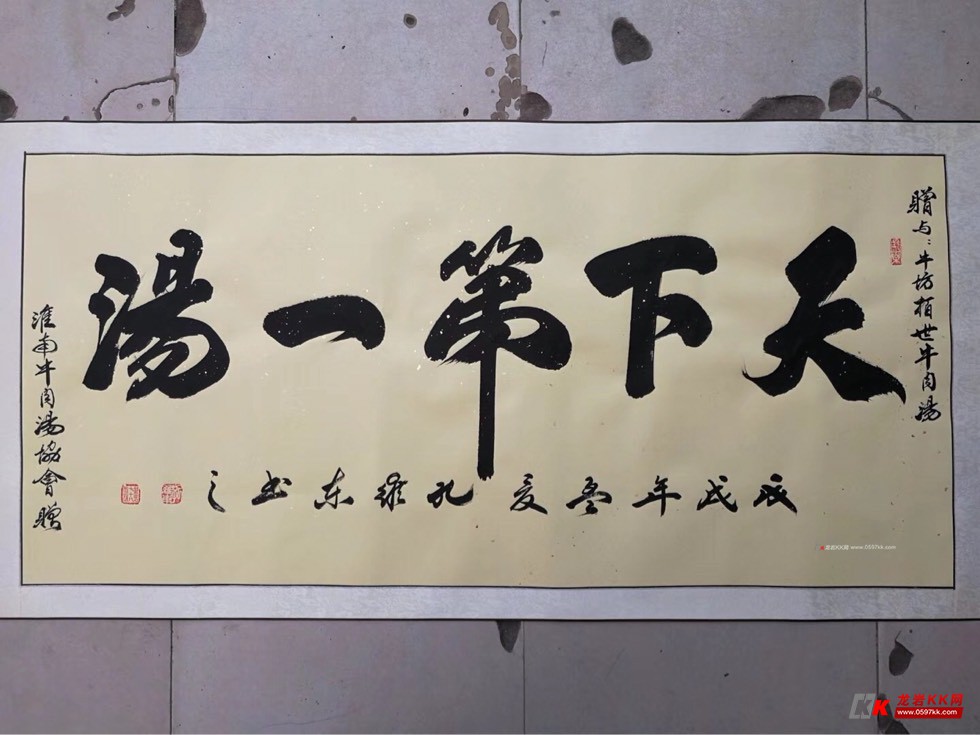 赠与:牛坊栢世牛肉湯
天下第一湯
戊戌年孟夏孔維东书之
淮南牛肉湯協會贈
龙岩KK网 www.0597kk.com
龙岩KK网
www.0597kk.com